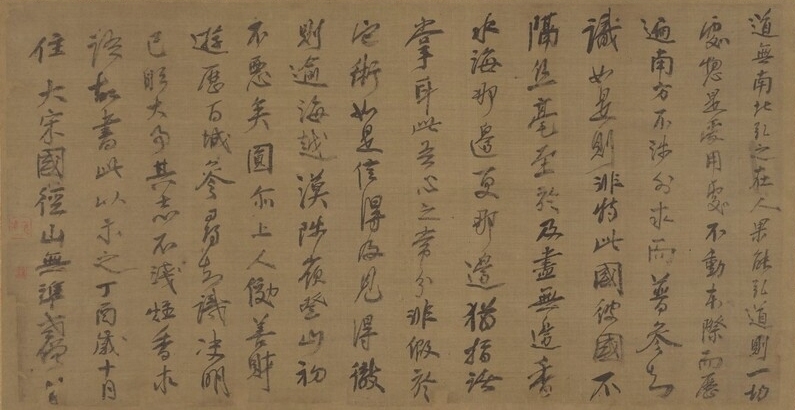 道無南北弘之在人果能弘道則一切
處惣是受用處不動本際而歷
遍南方不涉外求而普參知
識如是則非特此國彼國不
隔絲毫至於及盡無邊香
水海那邊更那邊猶指諸
掌耳此吾心之常分非假於
它術如是信得及見得徹
則逾海越漠陟嶺登山初
不惡矣圓爾上人效善財
遊歷百城參尋知識決明
己躬大事其志不淺炷香求
語故書此以示之丁酉歲十月
住大宋國徑山無準